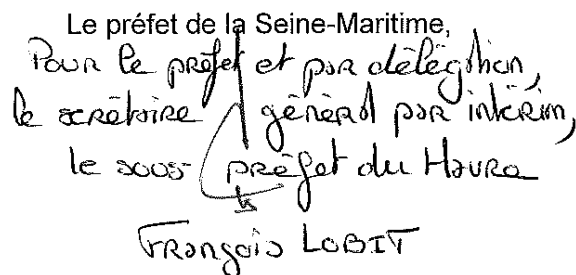 Le préfet de la Seine-Maritime,
Pour le préfet et par délégation,
le secrétaire général par intérim,
le sous-préfet du Havre
François LOBIT